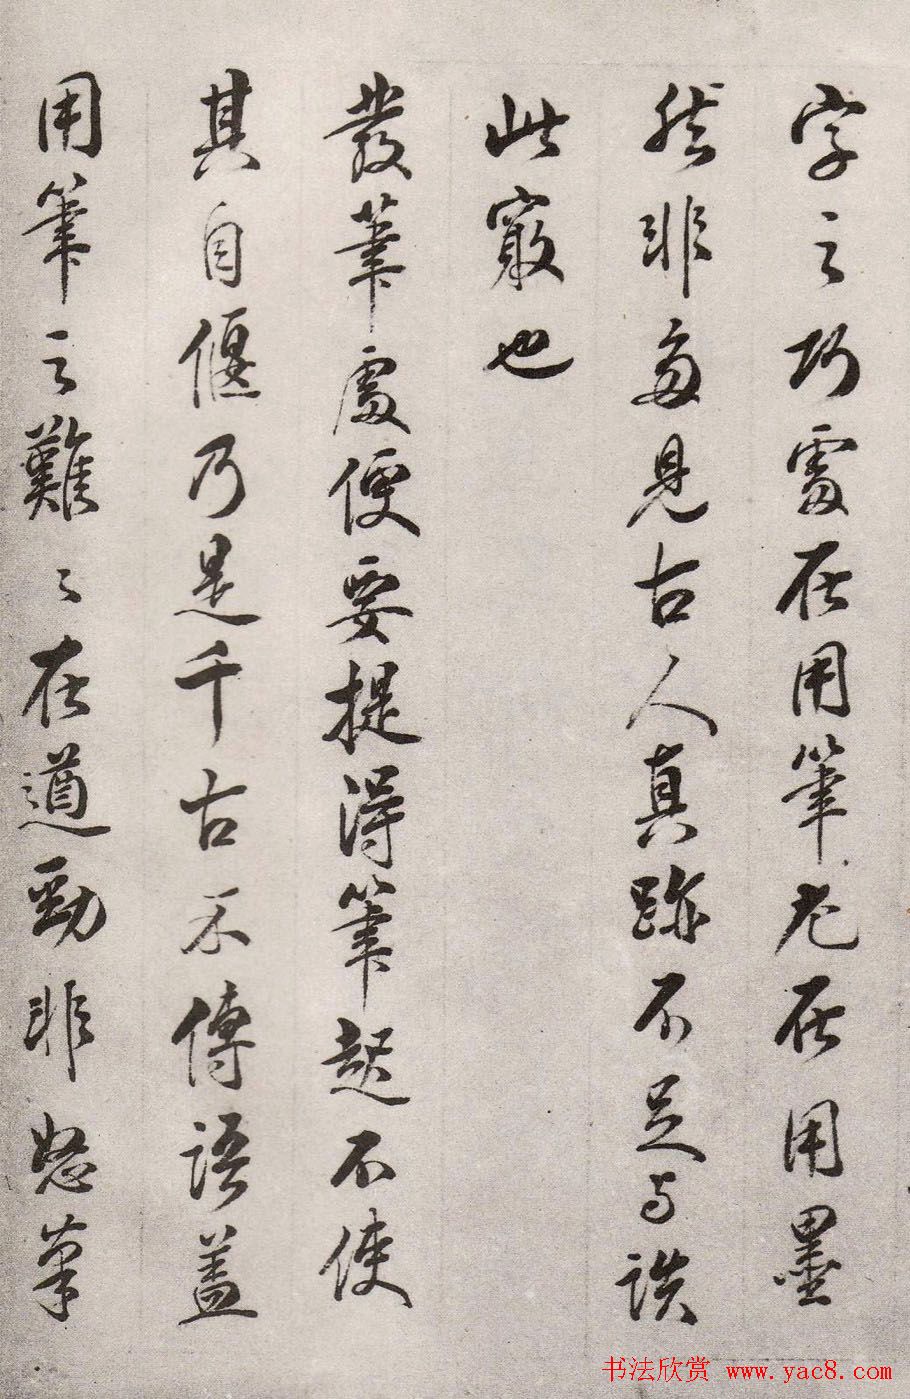 字之巧處在用筆尤在用墨
然非多見古人真跡不足与談
此竅也
發筆處便要提得筆起不使
其自偃乃是千古不傳語蓋
用筆之難々在遒勁非怒筆
书法欣赏 www.yac8.com